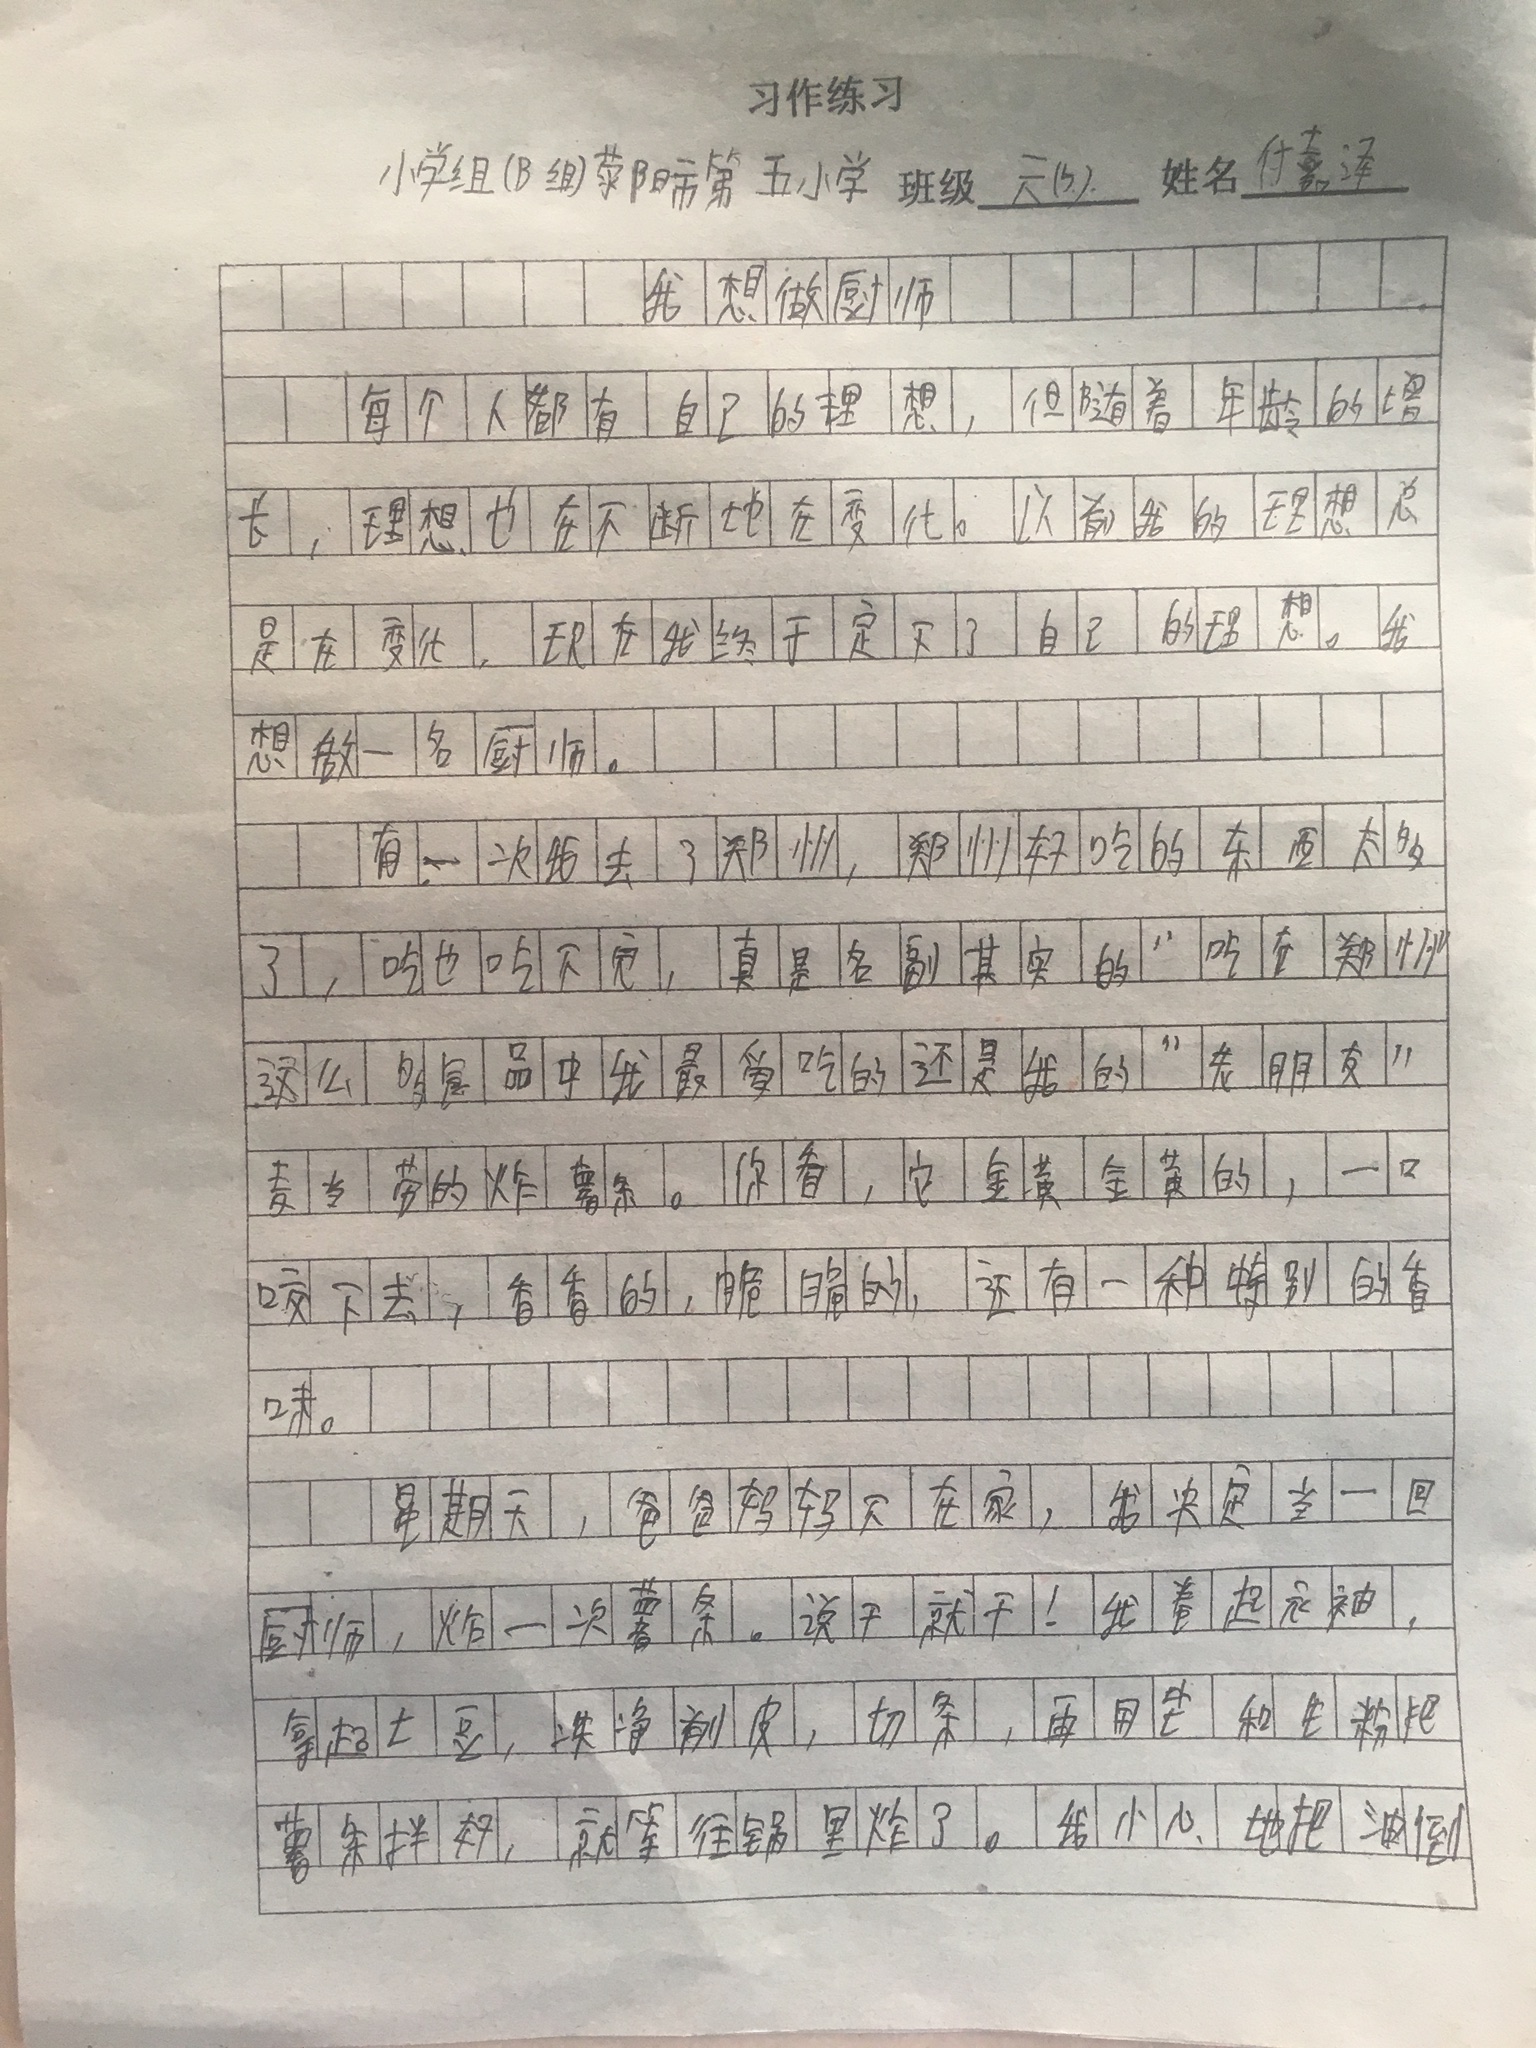 习作练习
小学组(B组)荥阳市第五小学 班级 六(5). 姓名 付嘉泽
我想做厨师
每个人都有自己的理想，但随着年龄的增
长，理想也在不断地在变化。以前我的理想总
是在变化，现在我终于定下了自己的理想。我
想做一名厨师。
有一次我去了郑州，郑州好吃的东西太多
了，吃也吃不完，真是名副其实的“吃在郑州”
这么多食品中我最爱吃的还是我的“老朋友”
麦当劳的炸薯条。你看，它金黄金黄的，一口
咬下去，香香的，脆脆的，还有一种特别的香
味。
星期天，爸爸妈妈不在家，我决定当一回
厨师，炸一次薯条。说干就干！我卷起衣袖，
拿起土豆，洗净削皮，切条，再用 和生粉把
薯条拌好，就等往锅里炸了。我小心地把油倒